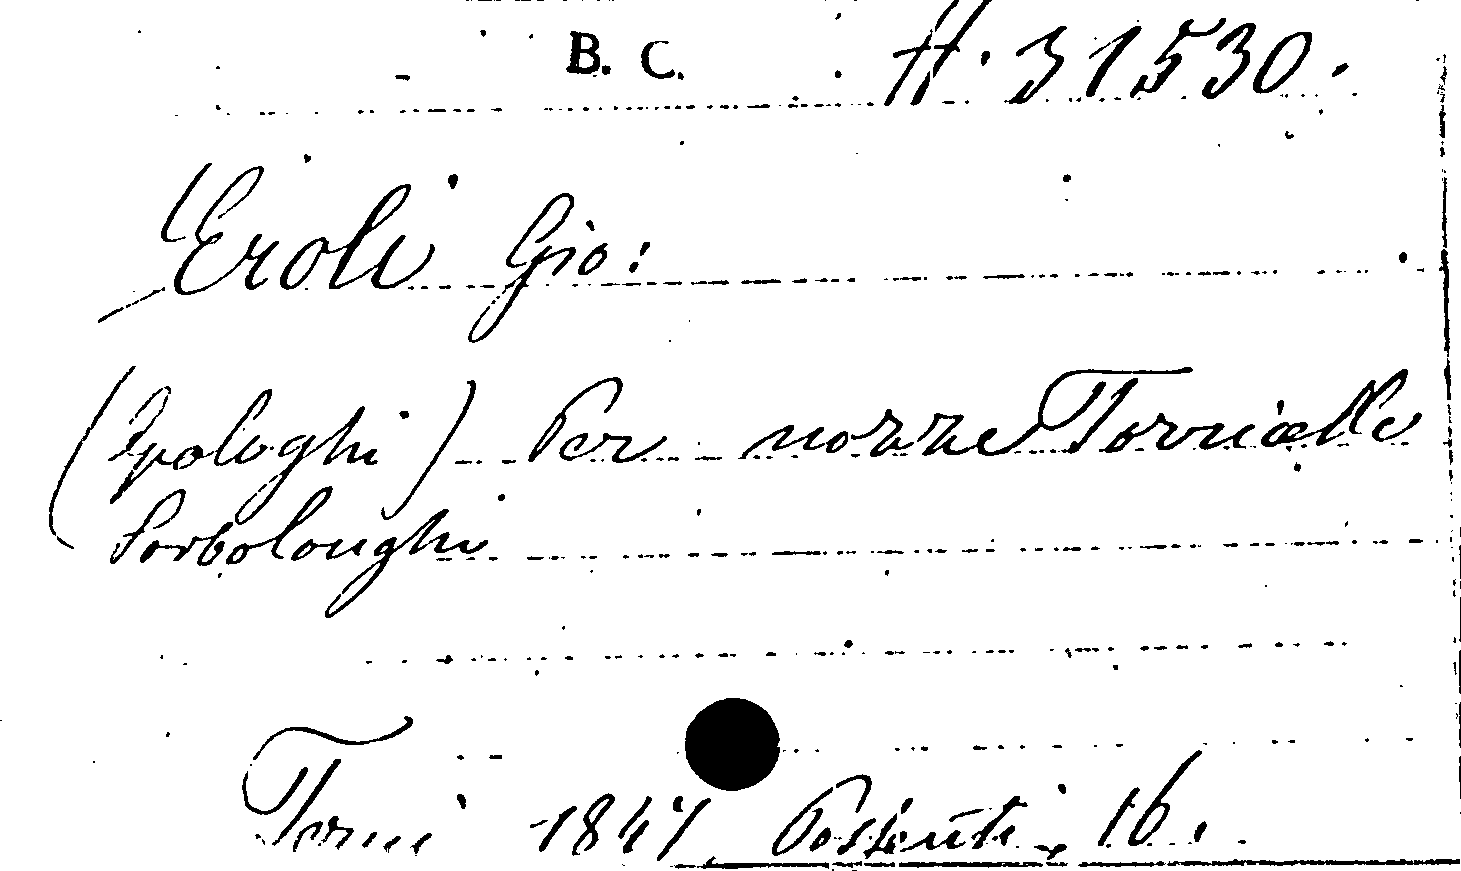 B. C. H. 31530.
Eroli Gio:
(Apologhi) Per nozze Tornielle
Sorbolonghi
Terni 1847, Possenti, 16.